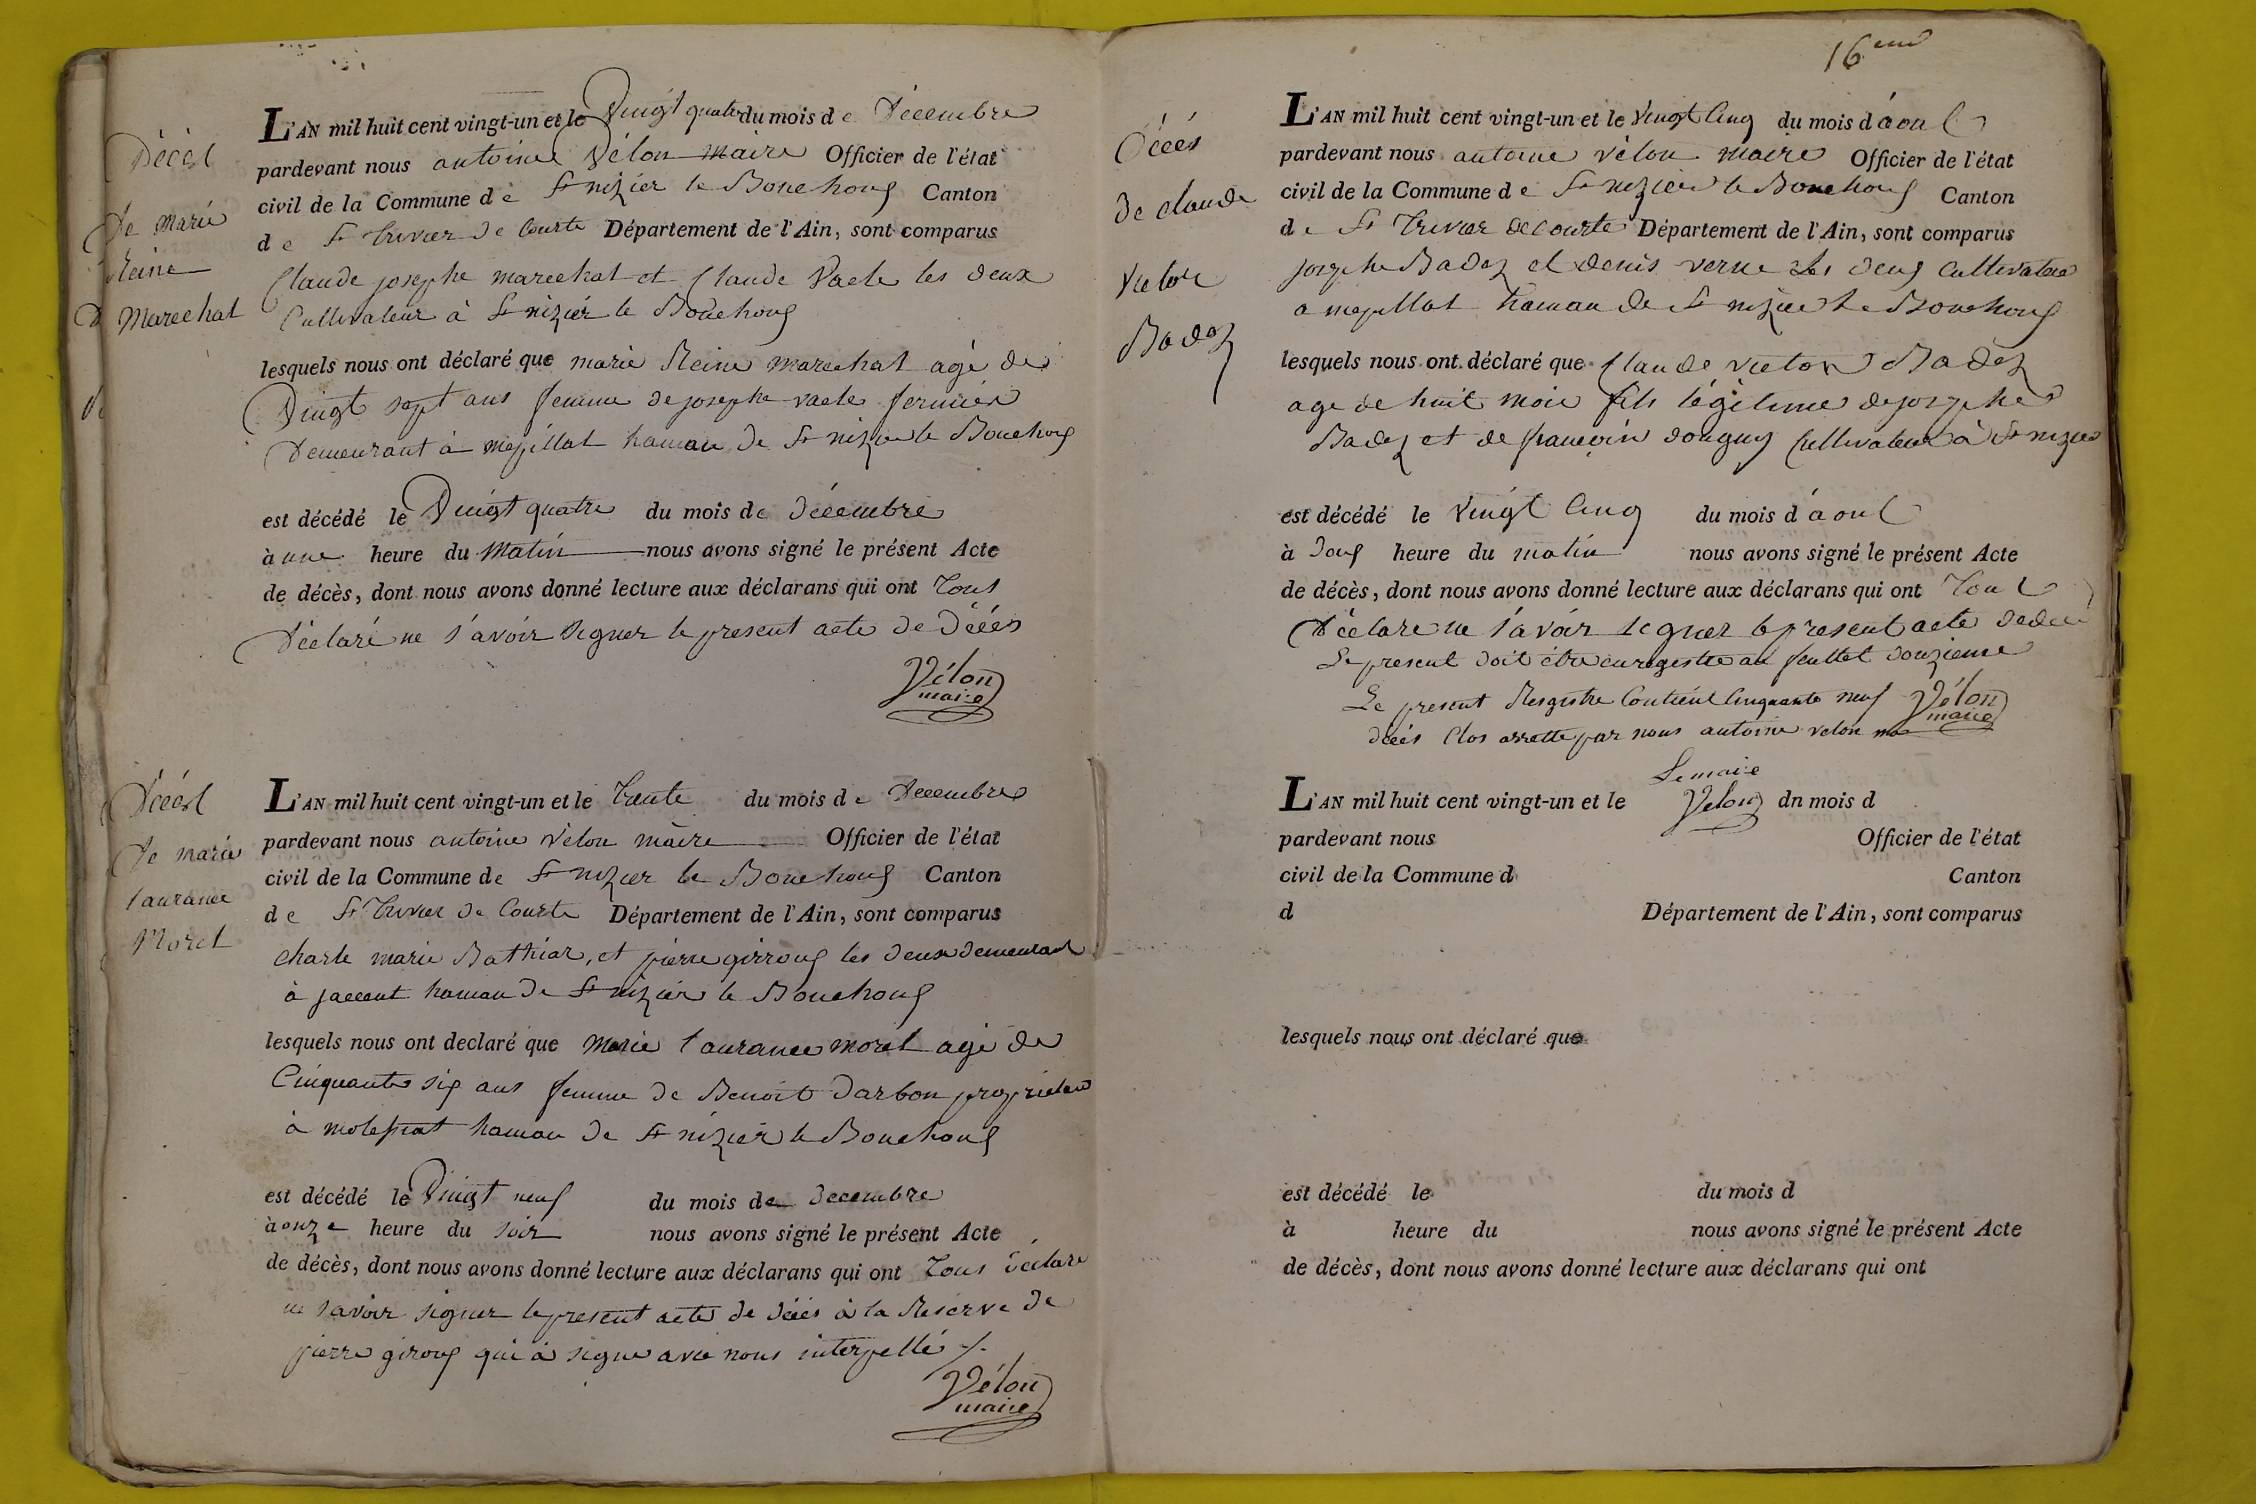 Décès
de marie
Reine
Marechal
L'AN mil huit cent vingt-un et le Vingt quatre du mois de Décembre
pardevant nous antoine Vélon maire Officier de l'état
civil de la Commune de St nizier le Bouchoux Canton
de St Trivier de Courte Département de l'Ain, sont comparus
Claude josephe marechal et Claude Vacle les deux
Cultivateur à St nizier le Bouchoux
lesquels nous ont déclaré que marie Reine marechal agé de
Vingt sept ans femme de josephe vacle fermier
Demeurant à mepillat hamau de St nizier le Bouchoux
est décédé le Vingt quatre du mois de décembre
à une heure du Matin nous avons signé le présent Acte
de décès, dont nous avons donné lecture aux déclarans qui ont Tous
Déclaré ne s'avoir signer le present acte de Décés
Vélon
maire
Décés
De marie
laurance
Morel
L'AN mil huit cent vingt-un et le Trente du mois de Decembre
pardevant nous antoine Vélon maire Officier de l'état
civil de la Commune de St nizier le Bouchoux Canton
de St Trivier de Courte Département de l'Ain, sont comparus
charle marie Bathiar, et pierre girroux les deux demeurant
à jaccant hamau de St nizier le Bouchoux
lesquels nous ont declaré que Marie laurance morel agé de
Cinquante six ans femme de Benoit Darbon proprietere
à moleprat hamau de St nizier le Bouchoux
est décédé le Vingt neuf du mois de decembre
à onze heure du soir nous avons signé le présent Acte
de décès, dont nous avons donné lecture aux déclarans qui ont Tous déclare
ne savoir signer le present acte de décés à la Reserve de
pierre giroux qui à signe avec nous interpellé
Vélon
maire
16eme
Décés
De claude
Victor
Badez
L'AN mil huit cent vingt-un et le Vingt Cinq du mois d'àout
pardevant nous antoine vélon maire Officier de l'état
civil de la Commune de St nizier le Bouchoux Canton
de St Trivier de Courte Département de l'Ain, sont comparus
josephe Badez et denis verne les deux Cultivateur
a mepillat hamau de St nizier le Bouchoux
lesquels nous ont déclaré que Claude victor Badez
age de huit mois fils légitime de josephe
Badez et de francoise douguy Cultivateur à St nizier
est décédé le Vingt Cinq du mois d'àout
à doux heure du matin nous avons signé le présent Acte
de décès, dont nous avons donné lecture aux déclarans qui ont Tout
Déclare ne s'avoir segner le present acte de
Le present doit étre enregistre au feullet douzieme
Le present Resgistre Contient Cinquante neuf Vélon
maire
décés Clos arrette par nous antoine velon
Le maire
L'AN mil huit cent vingt-un et le Velon dn mois d
pardevant nous Officier de l'état
civil de la Commune d Canton
d Département de l'Ain, sont comparus
lesquels nous ont déclaré que
est décédé le du mois d
à heure du nous avons signé le présent Acte
de décès, dont nous avons donné lecture aux déclarans qui ont